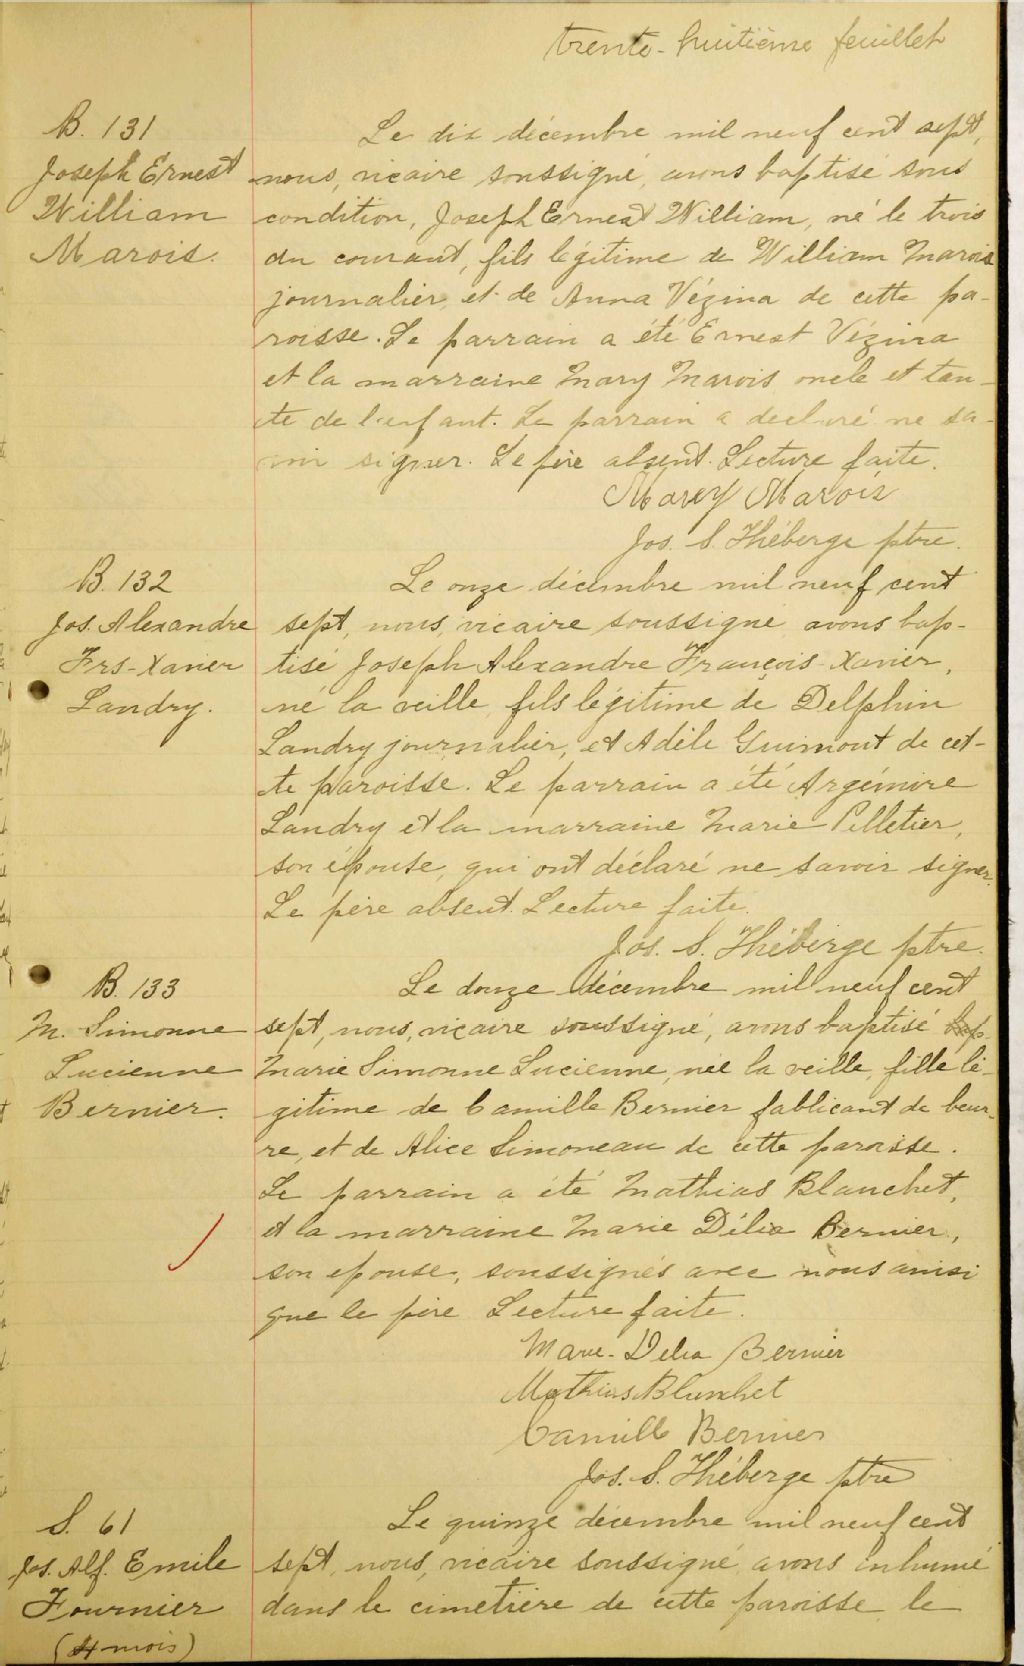 trente-huitième feuillet
B. 131
Joseph Ernest
William
Marois.
Le dix décembre mil neuf cent sept,
nous, vicaire soussigné, avons baptisé sous
condition, Joseph Ernest William, né le trois
du courant, fils légitime de William Marois
journalier, et de Anna Vézina de cette pa-
roisse. Le parrain a été Ernest Vézina
et la marraine Mary Marois oncle et tan-
te de l'enfant. Le parrain a declaré ne sa-
voir signer. Le père absent. Lecture faite.
Marey Marois
Jos. S. Théberge ptre.
B. 132
Jos. Alexandre
Frs-Xavier
Landry.
Le onze décembre mil neuf cent
sept, nous, vicaire soussigné avons bap-
tisé Joseph Alexandre François-Xavier,
né la veille, fils légitime de Delphin
Landry journalier, et Adèle Guimont de cet-
te paroisse. Le parrain a été Argémire
Landry et la marraine Marie Pelletier,
son épouse, qui ont déclaré ne savoir signer.
Le père absent. Lecture faite.
Jos. S. Théberge ptre.
B. 133
M. Simonne
Lucienne
Bernier.
Le douze décembre mil neuf cent
sept, nous, vicaire soussigné, avons baptisé
Marie Simonne Lucienne, née la veille, fille lé-
gitime de Camille Bernier fablicant de beur-
re, et de Alice Simoneau de cette paroisse.
Le parrain a été Mathias Blanchet,
et la marraine Marie Délia Bernier,
son epouse, soussignés avec nous ainsi
que le père Lecture faite.
Marie-Delia Bernier
Mathias Blanchet
Camille Bernier
Jos. S. Théberge ptre
S. 61
Jos. Alf. Emile
Fournier
(4 mois)
Le quinze décembre mil neuf cent
sept, nous, vicaire soussigné, avons inhumé
dans le cimetière de cette paroisse, le